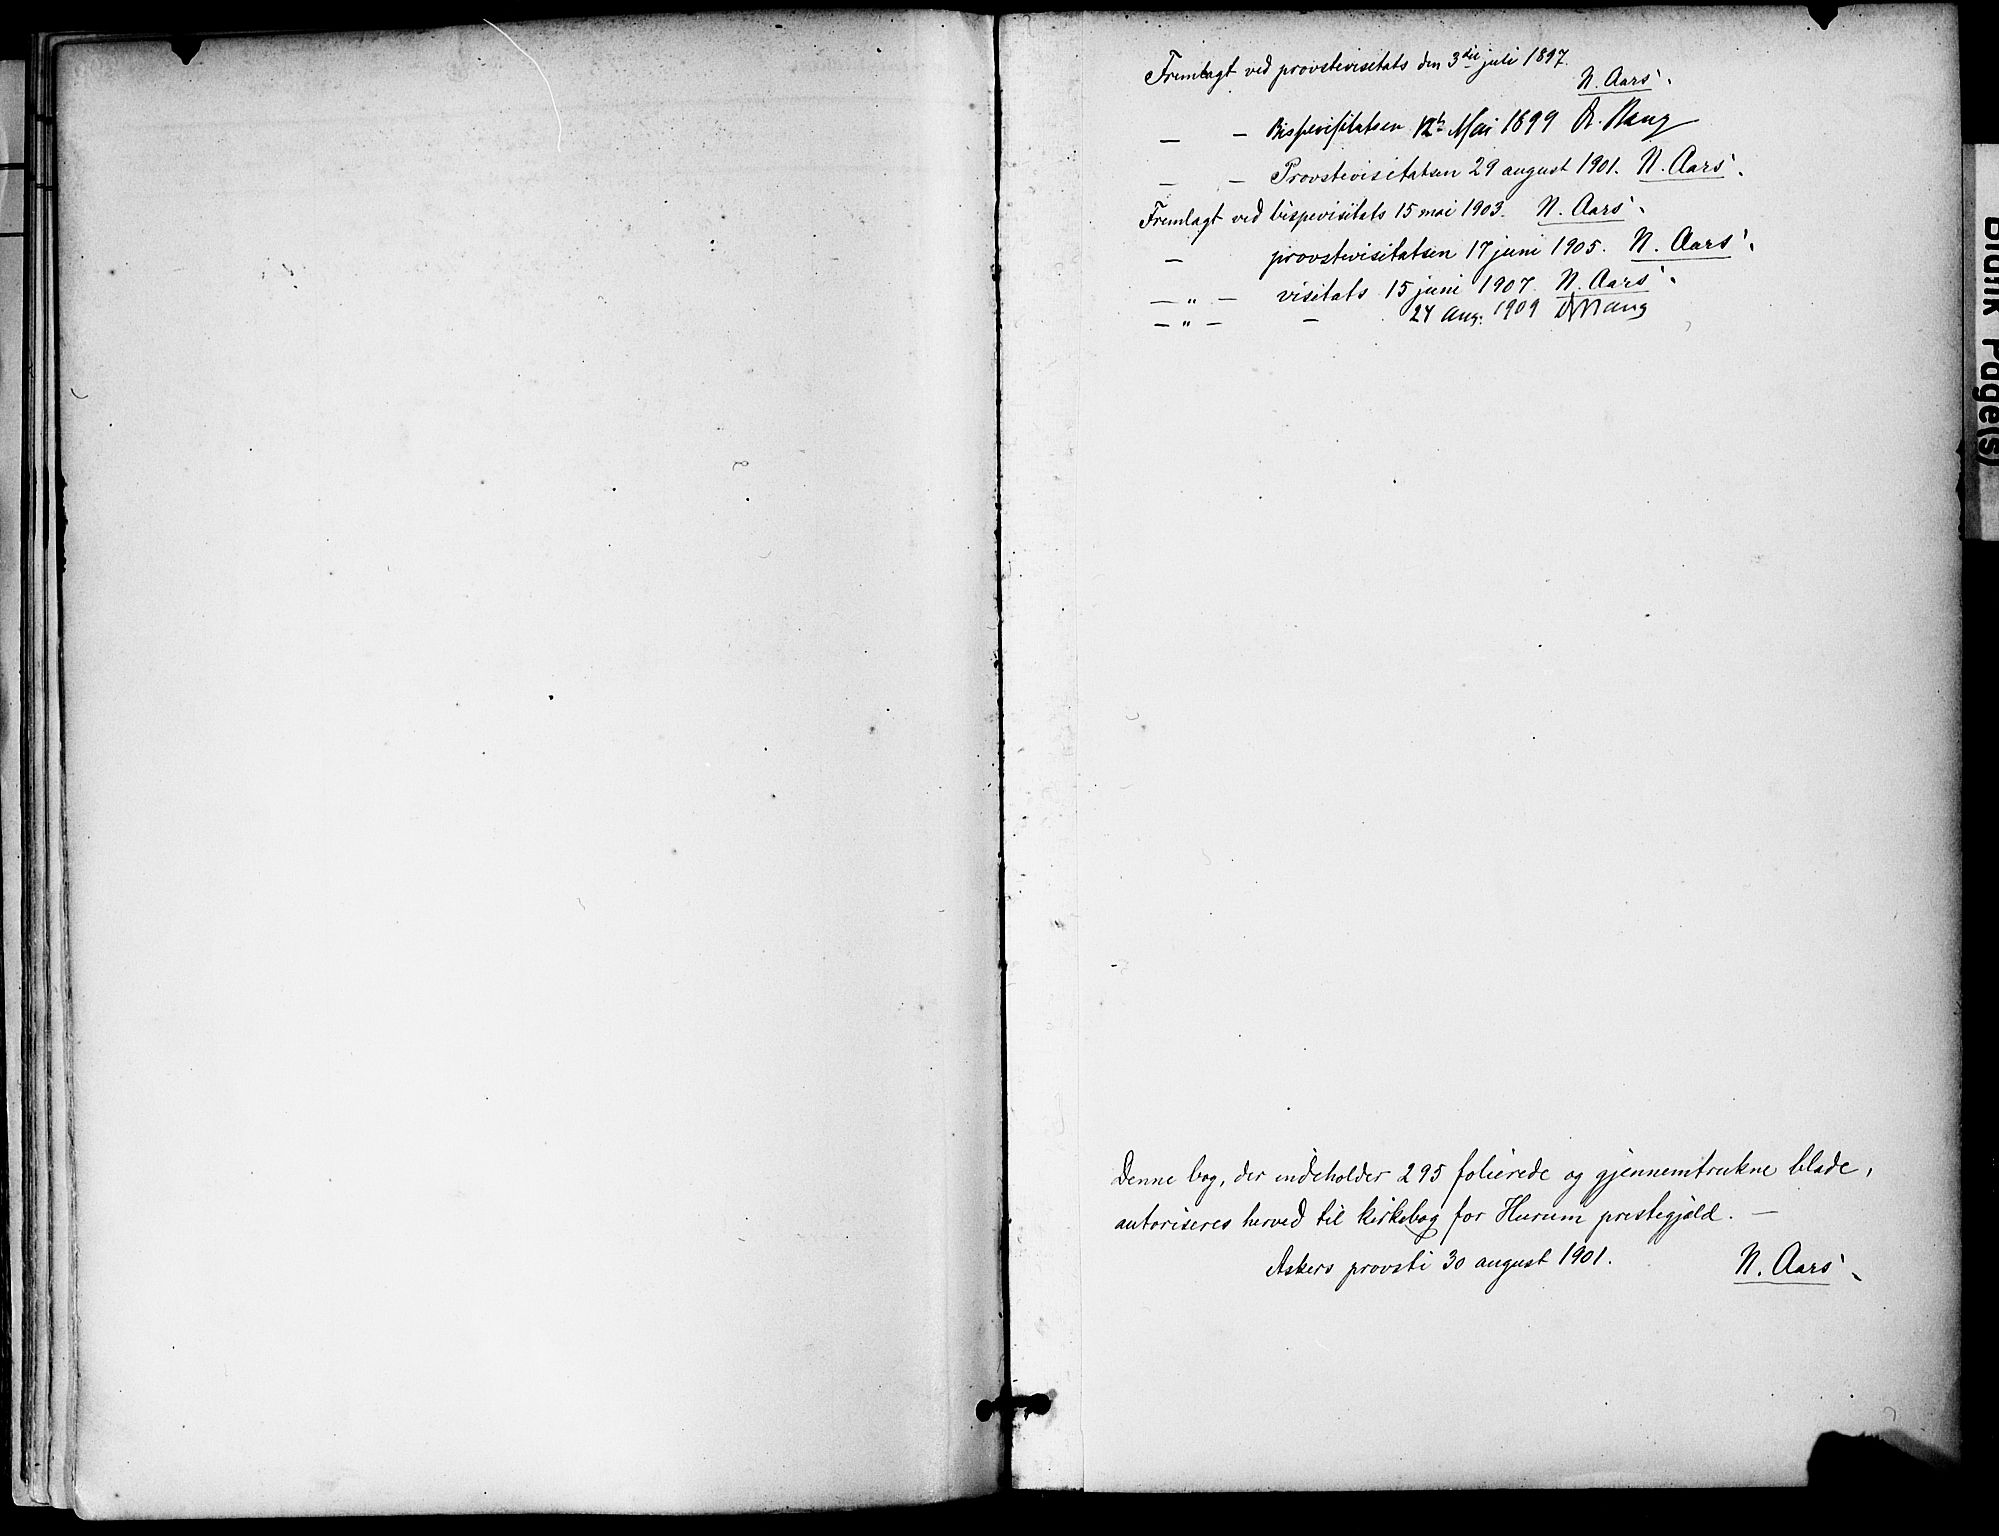 Fremlagt ved provstevisitats den 3die juli 1897.
N. Aars.
— — Bispevisitatsen 12te Mai 1899 A. Bang
— — Provstevisitatsen 29 august 1901. N. Aars.
Fremlagt ved bispevisitats 15 mai 1903. N. Aars.
— provstevisitatsen 17 juni 1905. N. Aars.
— " — visitats 15 juni 1907. N. Aars.
— " — — 24 Aug. 1909 Bang
Denne bog, der indeholder 295 folierede og gjennemtrukne blade,
autoriseres herved til kirkebog for Hurum prestegjæld. —
Askers provsti 30 august 1901. N. Aars.
Blank Page(s)